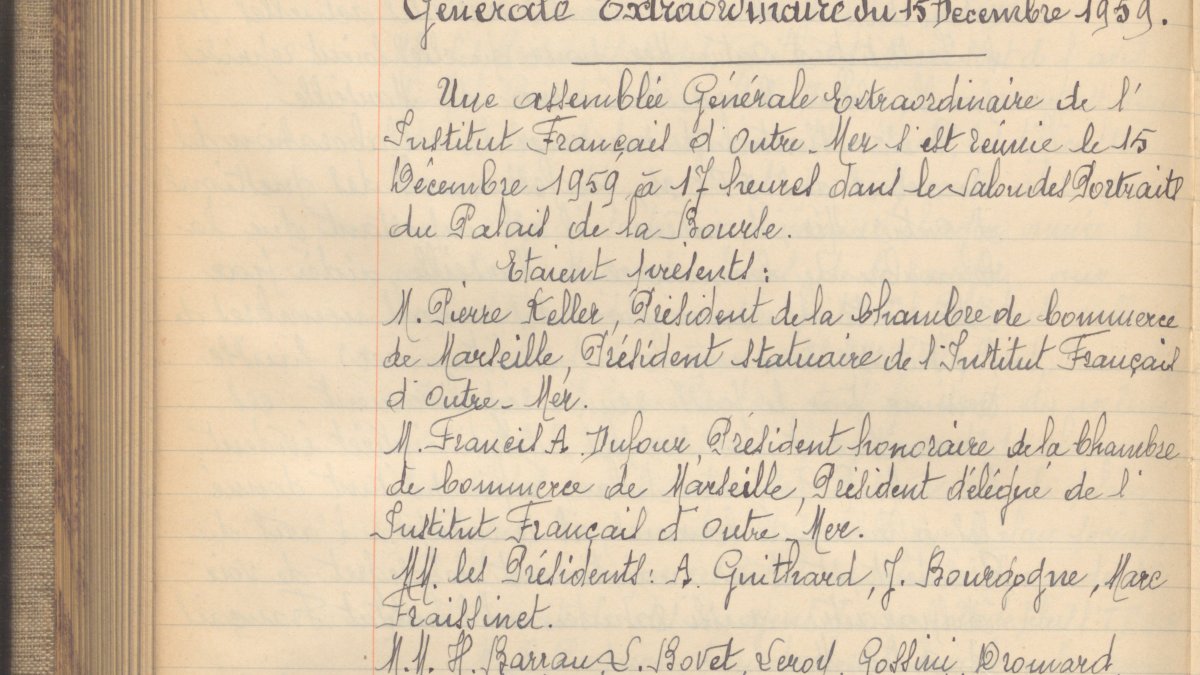 Générale Extraordinaire du 15 Décembre 1959.
Une assemblée Générale Extraordinaire de l'
Institut Français d'Outre-Mer s'est réunie le 15
Décembre 1959 à 17 heures dans le Salon des Portraits
du Palais de la Bourse.
Etaient présents :
M. Pierre Keller, Président de la Chambre de Commerce
de Marseille, Président statuaire de l'Institut Français
d'Outre-Mer.
M. Francis A. Dufour, Président honoraire de la Chambre
de Commerce de Marseille, Président délégué de l'
Institut Français d'Outre-Mer.
MM. les Présidents : A. Guithard, J. Bourgogne, Marc
Fraissinet.
M.M. H. Barrau, L. Bovet, Leroy, Gossini, Dromard,